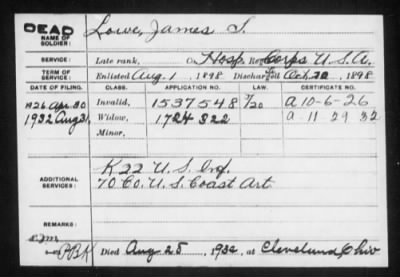 DEAD
NAME OF SOLDIER: Lowe, James T.
SERVICE: Late rank, Co. Hosp Reg't Corps U.S.A.
TERM OF SERVICE: Enlisted Aug. 1, 1898 Discharged Oct. 30, 1898
DATE OF FILING. CLASS. APPLICATION NO. LAW. CERTIFICATE NO.
1926 Apr. 30 Invalid, 1537548 7/20 a 10-6-26
1932 Aug 31 Widow, 1724322 a-11-29 32
Minor,
ADDITIONAL SERVICES: K 22 U.S. Inf.
70 Co. U.S. Coast Art
REMARKS:
PBK Died Aug 25, 1932, at Cleveland, Ohio